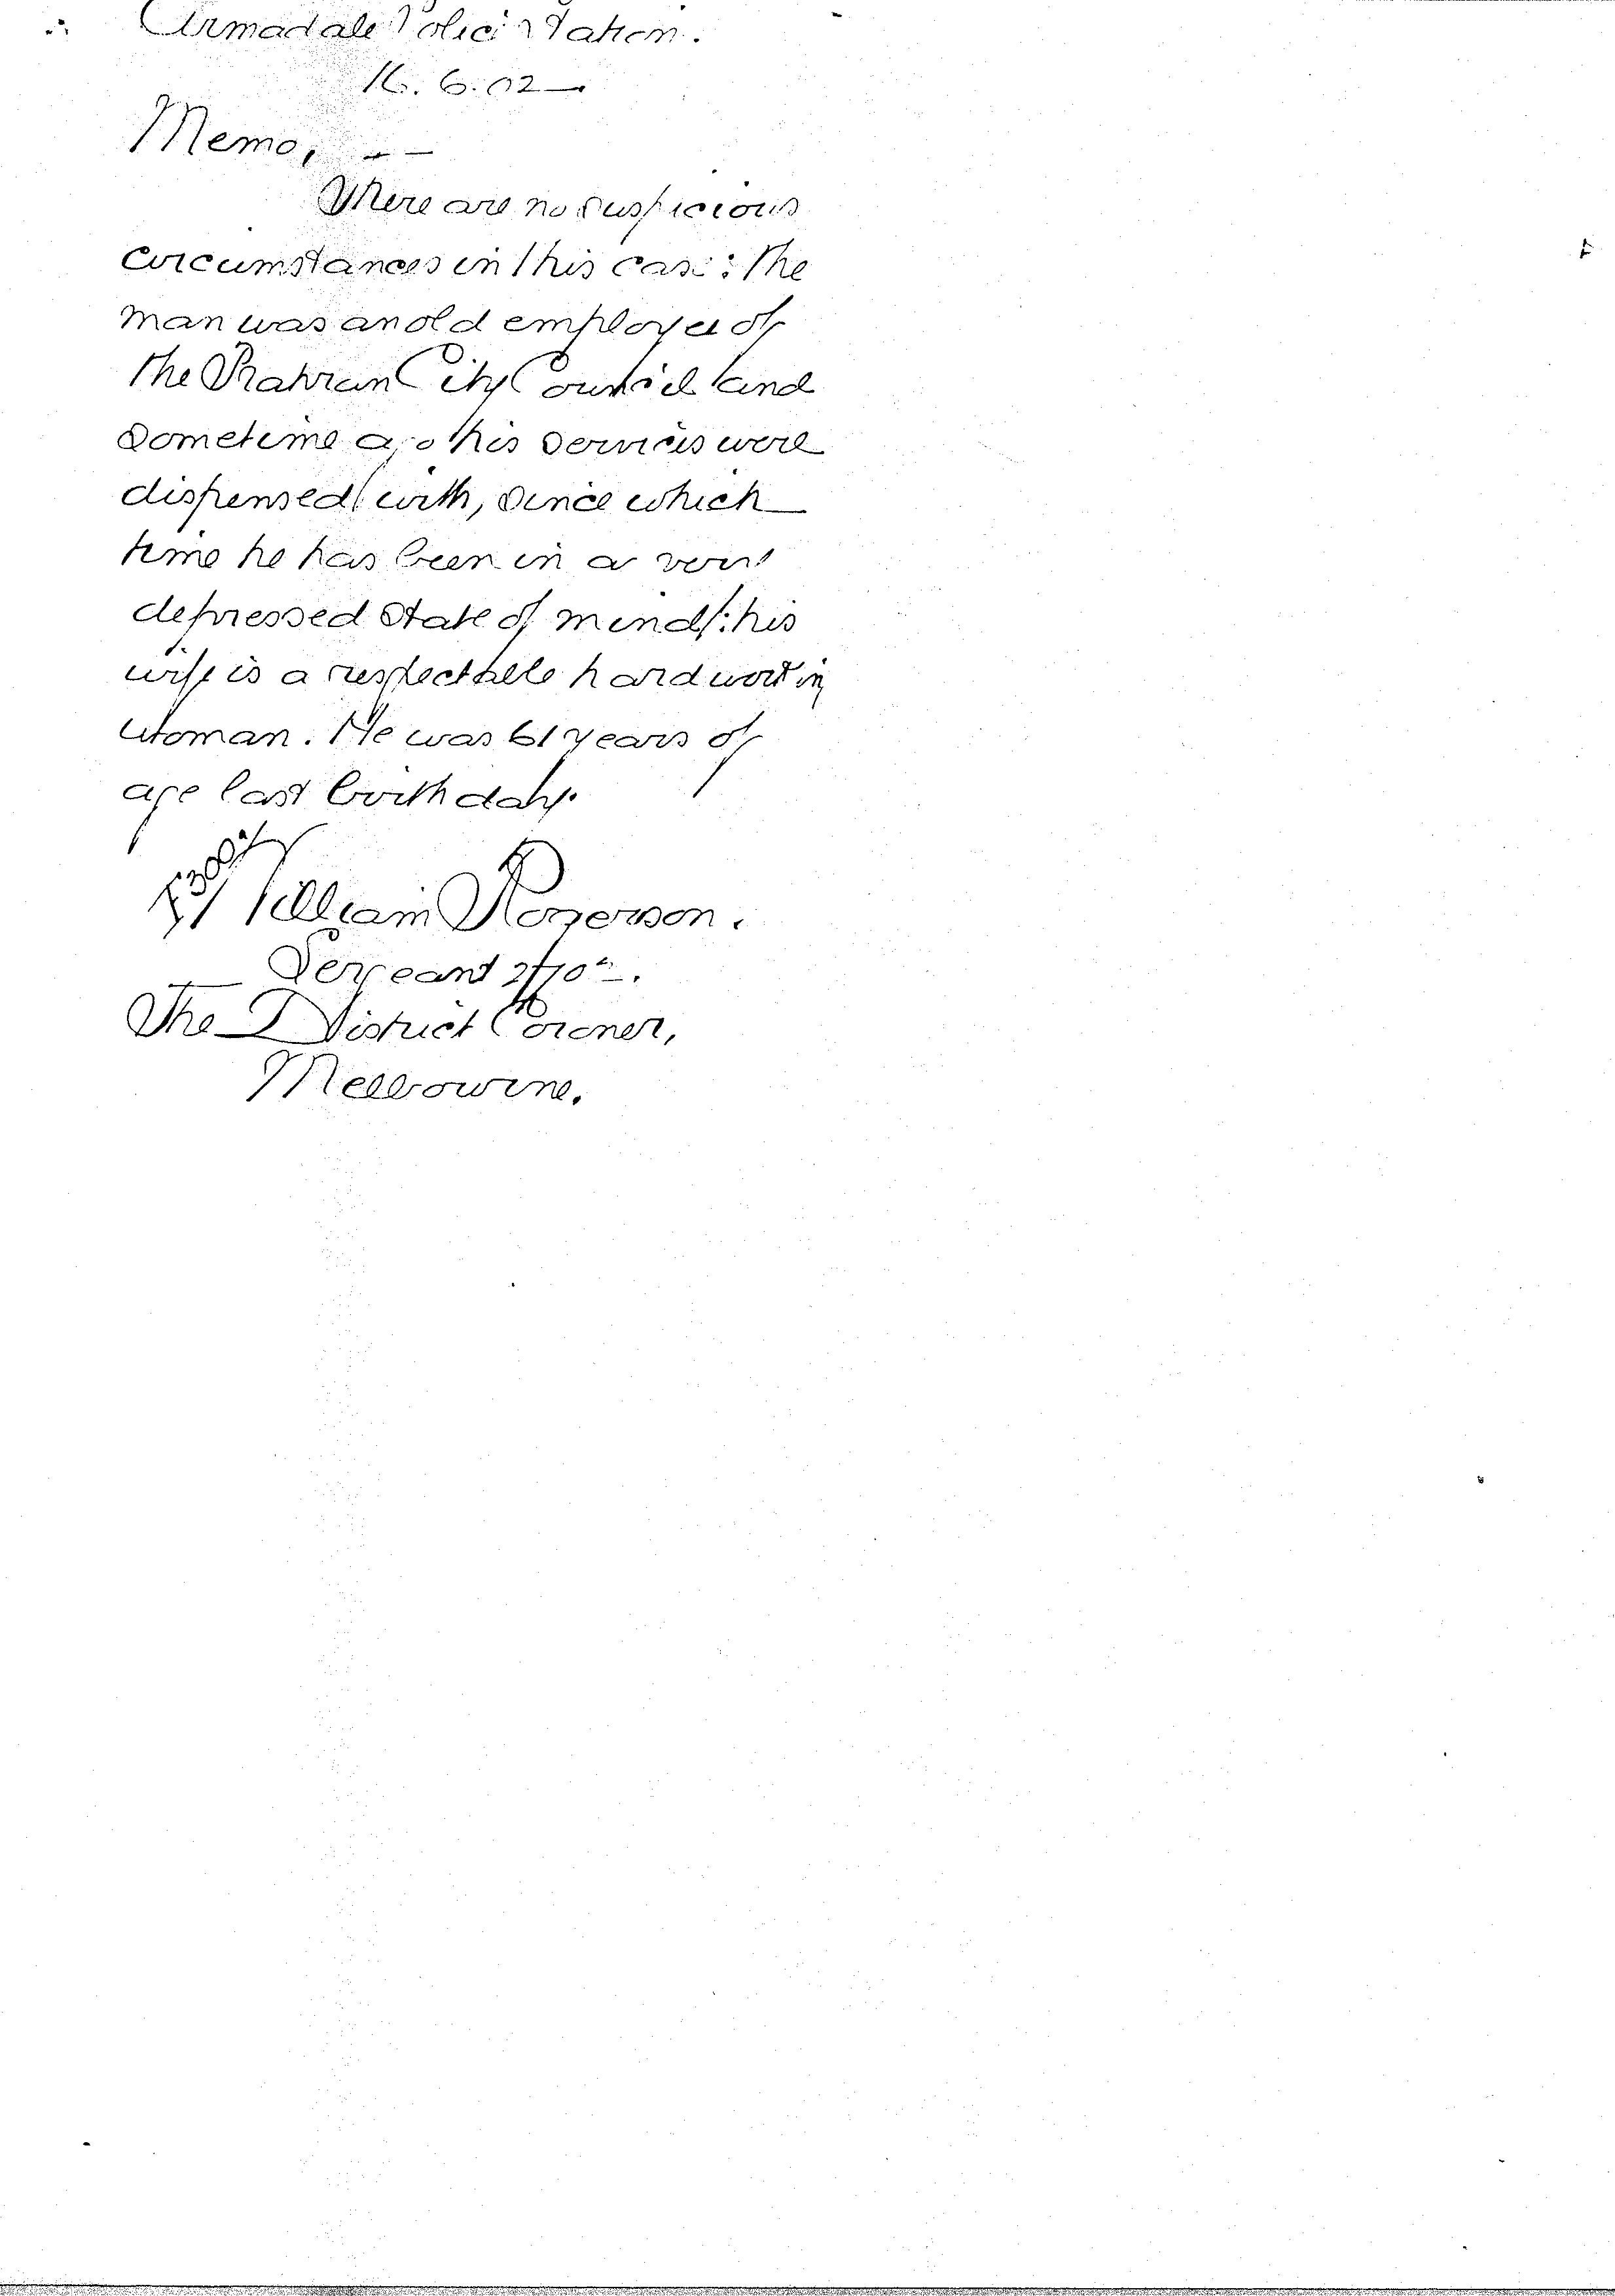 Armadale Police Station.
16. 6. 02
Memo,
There are no suspicious
circumstances in this case: the
man was an old employee of
the Prahran City Council and
sometime ago his services were
dispensed with, since which
time he has been in a very
depressed state of mind: his
wife is a respectable hardworking
woman. He was 61 years of
age last birthday.
William Rogerson.
Sergeant
The District Coroner,
Melbourne.